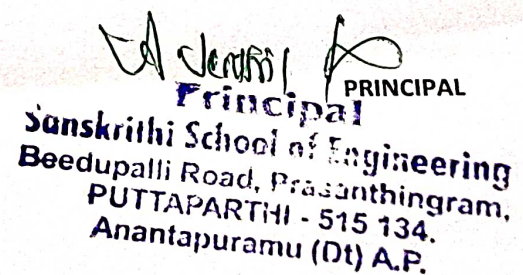 PRINCIPAL
Principal
Sanskrithi School of Engineering
Beedupalli Road, Prasanthingram,
PUTTAPARTHI - 515 134.
Anantapuramu (Dt) A.P.